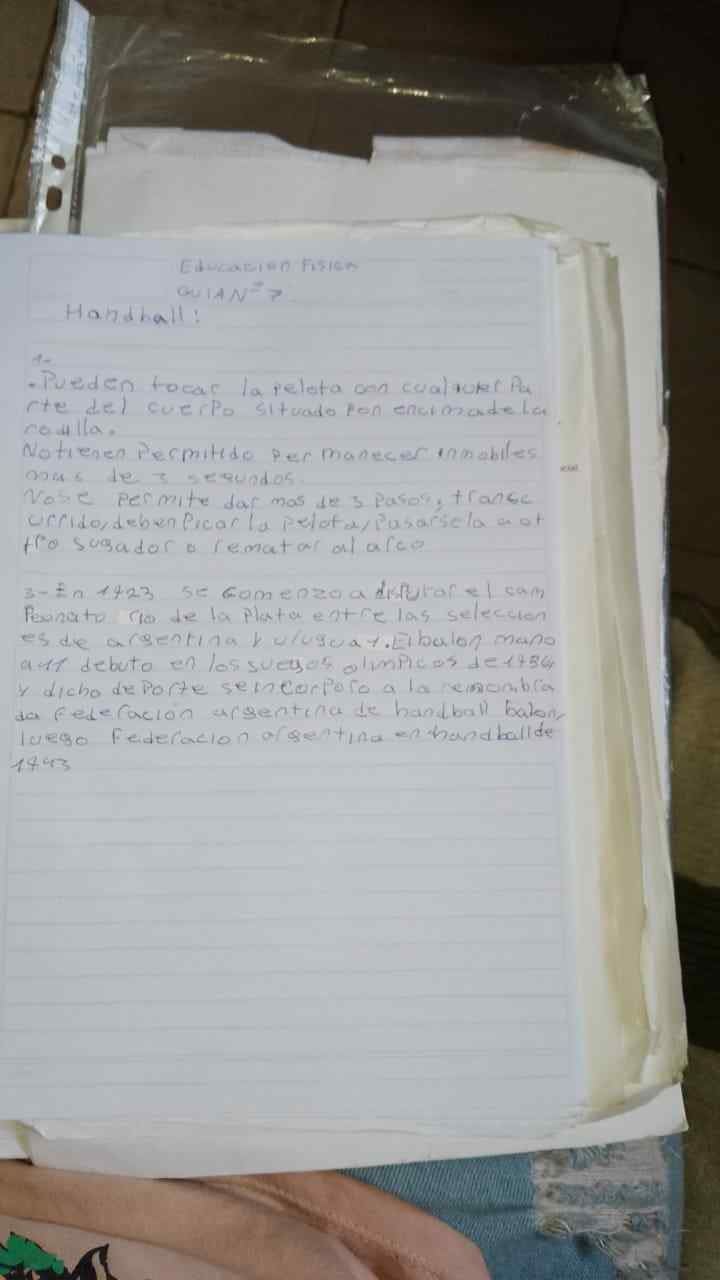 Educacion Fisica
GUIA Nº 7
Handball:
1-
.Pueden tocar la pelota con cualquier Pa
rte del cuerpo situado por encima de la
rodilla.
No tienen Permitido Permanecer inmobiles
mas de 3 segundos.
No se permite dar mas de 3 Pasos, transc
urrido, deben Picar la pelota, Pasarsela a ot
tro jugador o rematar al arco
3- En 1923 se comenzo a disputar el cam
Peonato rio de la Plata entre las seleccion
es de argentina y uruguay. El balon mano
a 11 debuto en los juegos olimpicos de 1934
y dicho deporte se incorporo a la renombra
da Federación argentina de handball balon,
luego Federacion argentina en handball de
1943